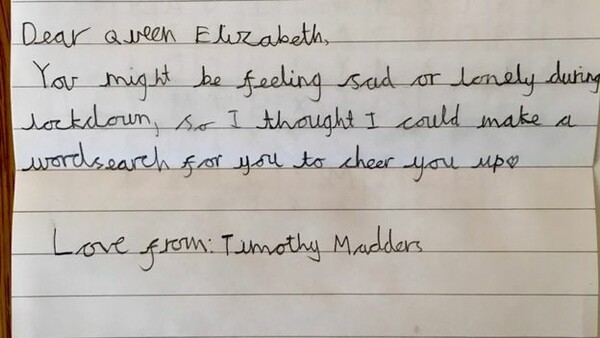 Dear Queen Elizabeth,
You might be feeling sad or lonely during
lockdown, so I thought I could make a
wordsearch for you to cheer you up♡
Love from: Timothy Madders